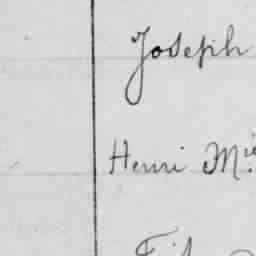 Joseph
Henri Mie